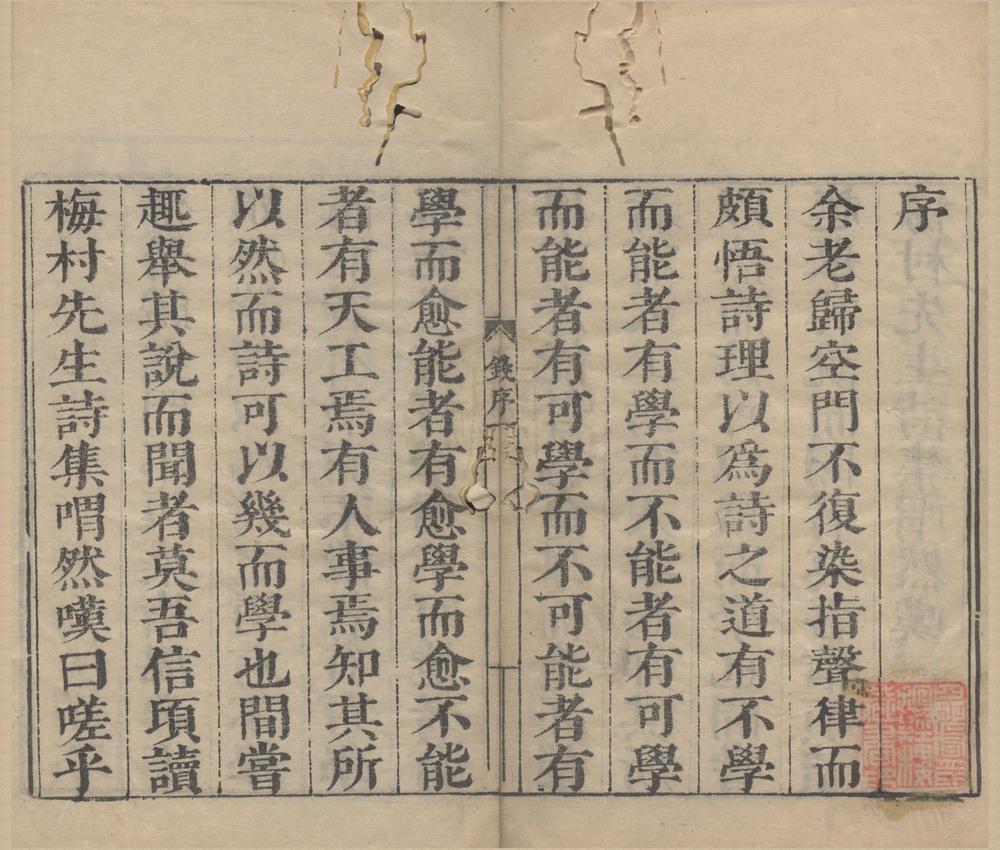 序
余老歸空門不復染指聲律而
頗悟詩理以爲詩之道有不學
而能者有學而不能者有可學
而能者有可學而不可能者有
錢序
一
學而愈能者有愈學而愈不能
者有天工焉有人事焉知其所
以然而詩可以幾而學也間嘗
趣舉其說而聞者莫吾信頃讀
梅村先生詩集喟然嘆曰嗟乎